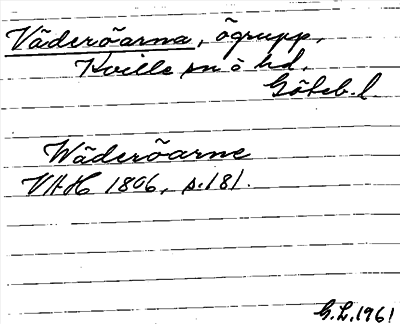 Väderöarna, ögrupp,
Kville sn o hd,
Göteb. l.
Wäderöarne
VAH 1806, s. 181.
G.L. 1961